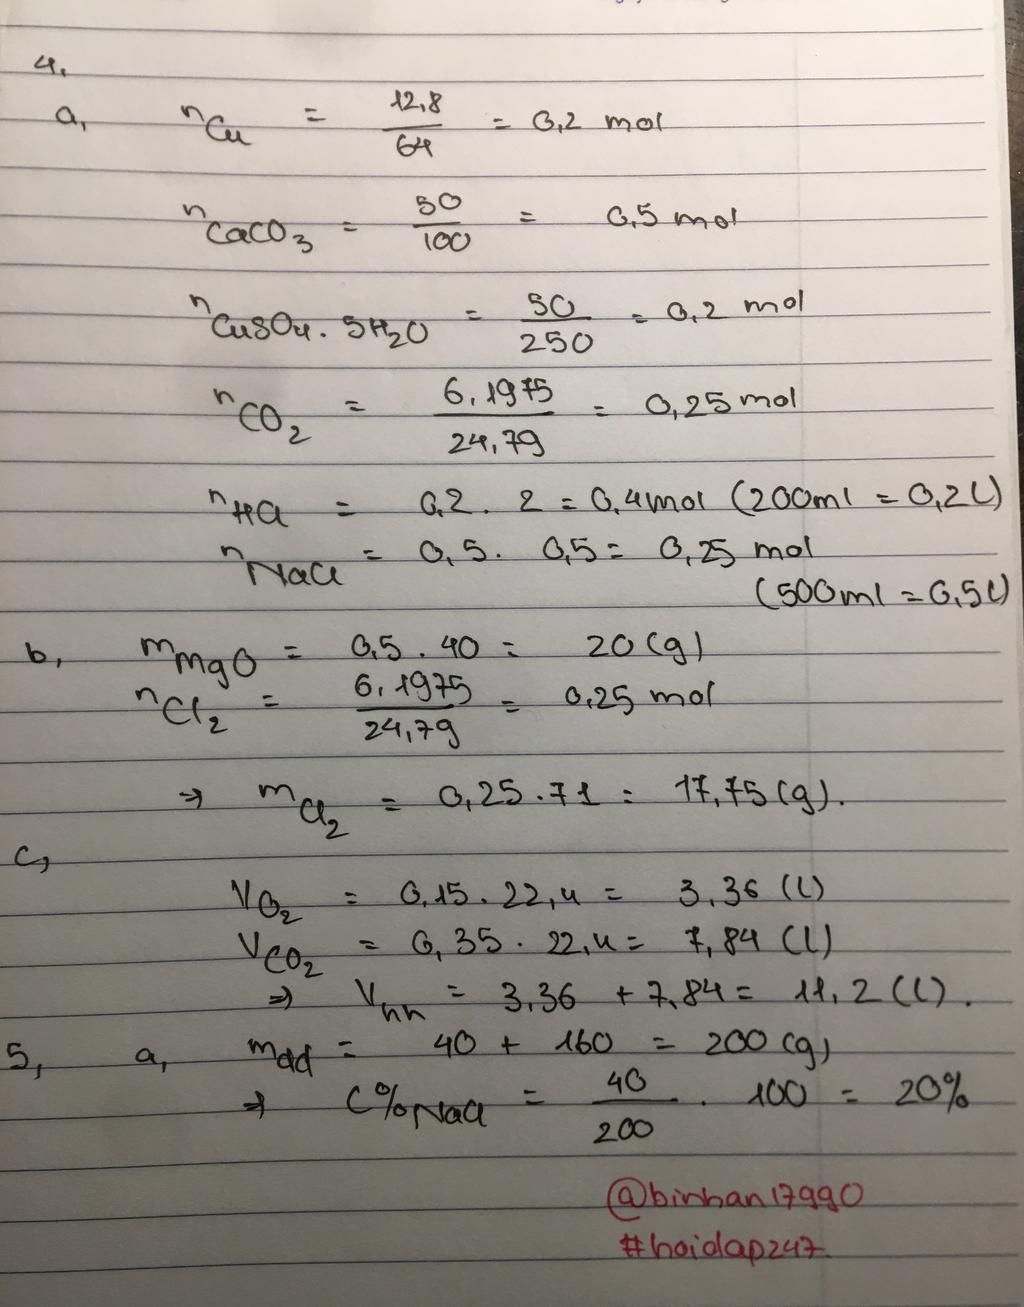 4.
a, nCu = 12,8/64 = 0,2 mol
nCaCO3 = 50/100 = 0,5 mol
nCuSO4. 5H2O = 50/250 = 0,2 mol
nCO2 = 6,1975/24,79 = 0,25 mol
nHCl = 0,2. 2 = 0,4 mol (200ml = 0,2l)
nNaCl = 0,5. 0,5 = 0,25 mol
(500ml = 0,5l)
b, mMgO = 0,5 . 40 = 20 (g)
nCl2 = 6,1975/24,79 = 0,25 mol
→ mCl2 = 0,25.71 = 17,75 (g).
c,
VO2 = 0,15. 22,4 = 3,36 (l)
VCO2 = 0,35 . 22,4 = 7,84 (l)
⇒ Vhh = 3,36 + 7,84 = 11,2 (l).
5, a, mdd = 40 + 160 = 200 (g)
⇒ C%NaCl = 40/200 . 100 = 20%
@binhan17990
#hoidap247